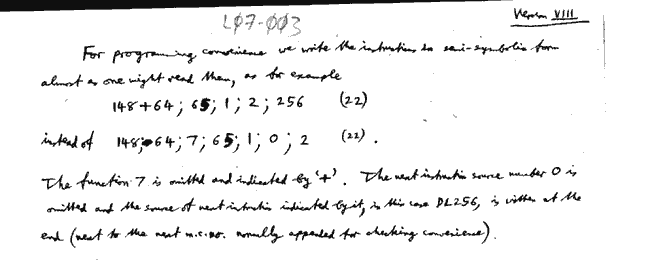 LØ7-ØØ3
Version VIII
For programming convenience we write the instructions in semi-symbolic form
almost as one might read them, as for example
148+64; 65; 1; 2; 256 (22)
instead of 148; 64; 7; 65; 1; 0; 2 (22).
The function 7 is omitted and indicated by '+'. The next instruction source number 0 is
omitted and the source of next instruction indicated by it, in this case DL256, is written at the
end (next to the next m.c. no. normally appended for checking convenience).